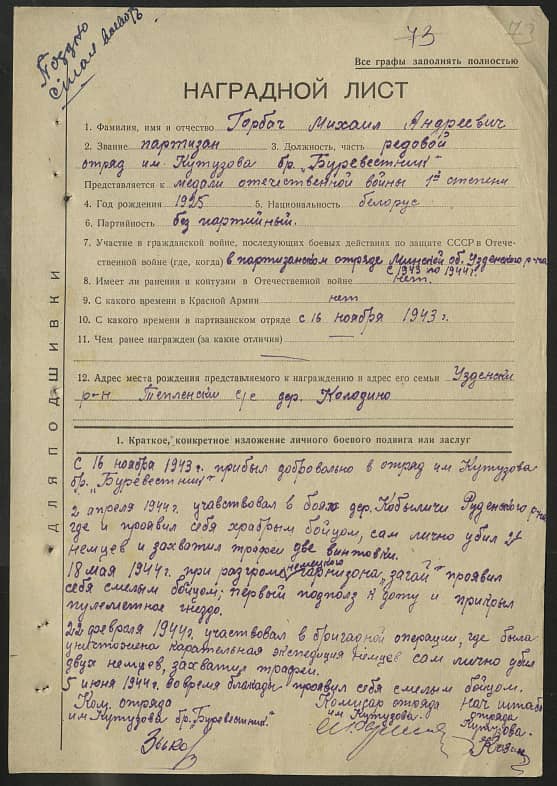 Поздно
73
73
Все графы заполнять полностью
НАГРАДНОЙ ЛИСТ
1. Фамилия, имя и отчество Горбач Михаил Андреевич
2. Звание партизан 3. Должность, часть редовой
отряд им. Кутузова бр. „Буревестник"
Представляется к медали отечественной войны 1ой степени
4. Год рождения 1925 5. Национальность белорус
6. Партийность без партийный.
7. Участие в гражданской войне, последующих боевых действиях по защите СССР в Отече-
ственной войне (где, когда) в партизанском отряде Минской об. Узденского р-на
с 1943 по 1944 г.
8. Имеет ли ранения и контузии в Отечественной войне нет.
9. С какого времени в Красной Армии нет
10. С какого времени в партизанском отряде с 16 ноября 1943 г.
11. Чем ранее награжден (за какие отличия) —
12. Адрес места рождения представляемого к награждению и адрес его семьи Узденский
р-н Тепленский с/с дер. Колодино
ДЛЯ ПОДШИВКИ
1. Краткое, конкретное изложение личного боевого подвига или заслуг
С 16 ноября 1943 г. прибыл добровольно в отряд им Кутузова
бр. „Буревестник"
2 апреля 1944 г. учавствовал в боях дер. Кобыличи Руденского р-на
где и проявил себя храбрым бойцом, сам лично убил 2х
немцев и захватил трофеи две винтовки.
18 мая 1944 г. при разгроме немецкого гарнизона „Загай" проявил
себя смелым бойцом; первый подполз к доту и прикрыл
пулеметное гнездо.
22 февраля 1944 г. участвовал в бригадной операции, где была
уничтожена карательная экспедиция немцев сам лично убил
двух немцев, захватил трофеи.
5 июня 1944 г. вовремя блокады проявил себя смелым бойцом.
Ком. отряда Комисар отряда Нач штаба
им Кутузова бр. „Буревестник" им Кутузова. отряда
Кутузова.